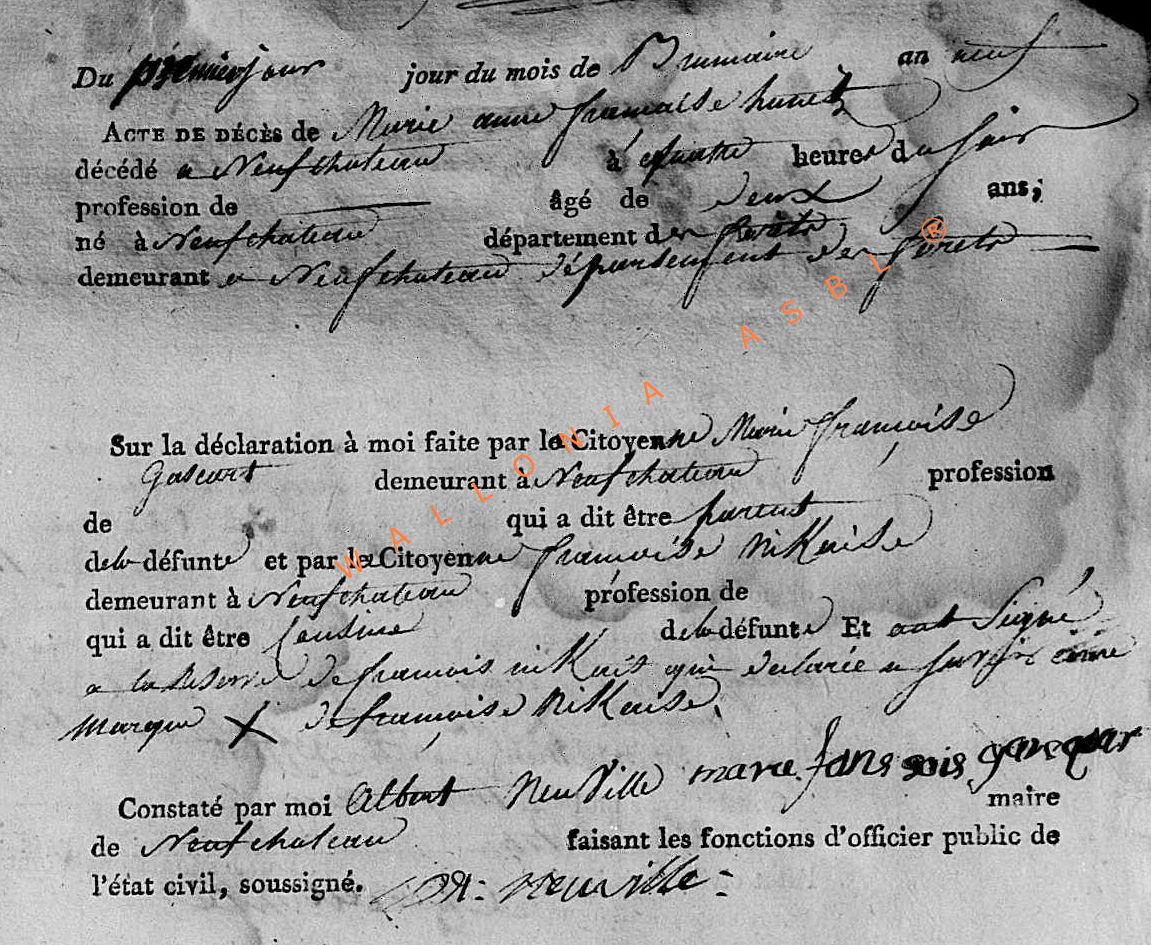 Du premier jour jour du mois de Brumaire an neuf
ACTE DE DÉCÈS de Marie anne francoise hunet
décédé a Neufchateau à quatre heures du soir
profession de âgé de deux ans;
né à Neufchateau département des forets
demeurant a Neufchateau département des forets
Sur la déclaration à moi faite par la Citoyenne Marie françoise
Gascart demeurant à Neufchateau profession
de qui a dit être parent
de la défunte et par la Citoyenne francoise niKaise
demeurant à Neufchateau profession de
qui a dit être Cousine de la défunte Et ont Signé
a la reserve de francois niKais qui declarée a
Marque X de françoise NiKaise.
marie fans sois gacquar
Constaté par moi Albert NeuVille maire
de Neufchateau faisant les fonctions d'officier public de
l'état civil, soussigné. neuville
WALLONIA ASBL ®